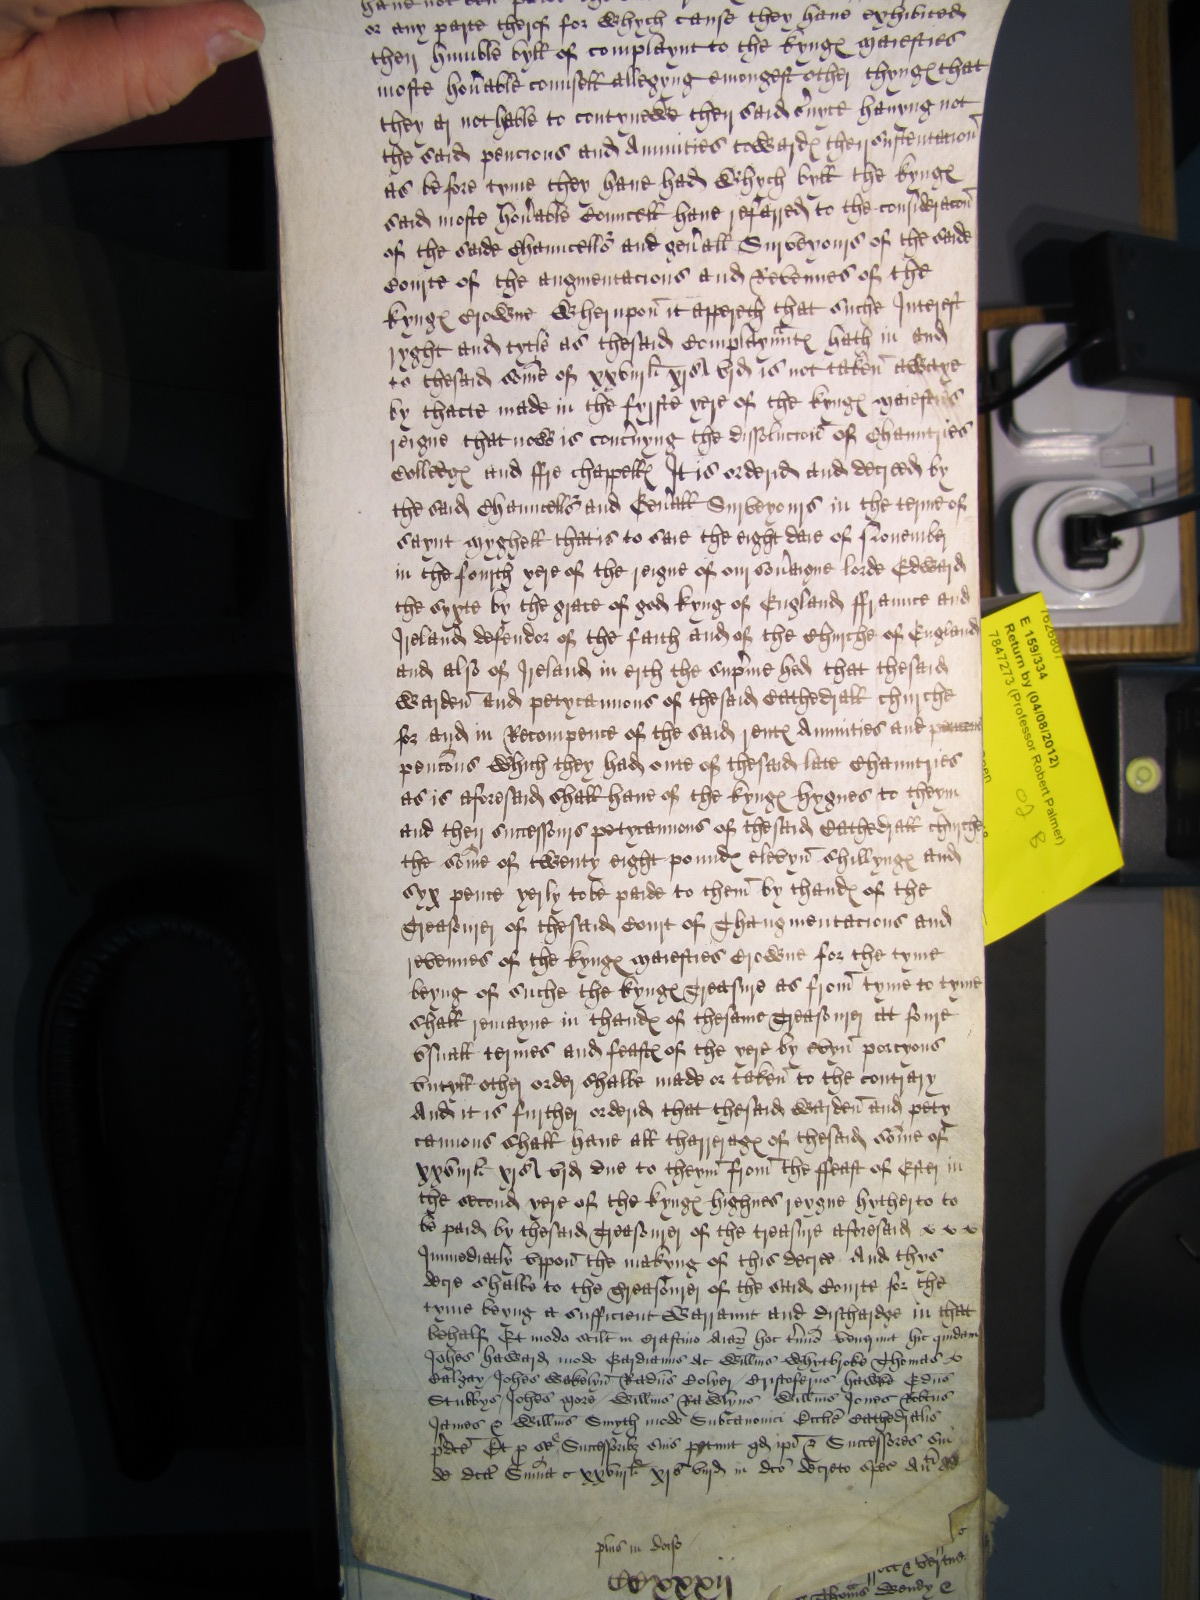 or any parte therof for whych cause they haue exhibited
their humble byll of complaynt to the kynges maiesties
moste hon'able counsell allegyng emongest other thynges that
they ar not hable to contynewe their said s'uyce hauyng not
the said pencions and Annuities towardes their sustentacion
as before tyme they haue had whych byll the kynges
said moste hon'able Councell haue referred to the consideracon
of the saide Chauncello' and gen'all Surveyours of the saide
Courte of the augmentacions and Revenues of the
kynges Crowne Wherupon it appereth that suche Interest
ryght and tytle as thesaid Complaynantes hath in and
to thesaid some of xxviijli xjs vjd is not taken awaye
by thacte made in the fyrste yere of the kynges maiesties
reigne that now is conc'nyng the dissolucion of Chauntries
Colledges and ffre chappelles It is orderid and decreed by
the said Chauncello' and Gen'all Surveyours in the terme of
saynt myghell that is to saie the eight daie of November
in the fourth yere of the reigne of our sou'aigne lorde Edward
the syxte by the grace of god kyng of England ffraunce and
Ireland defendor of the faith and of the Churche of England
and also of Ireland in erth the sup'me hed that thesaid
Warden and petycannons of thesaid Cathedrall churche
for and in Recompence of the said rentes Annuities and
penc'ons which they had oute of thesaid late Chauntries
as is aforesaid shall haue of the kynges hygnes to theym
and their successours petycannons of thesaid Cathedrall churche
the some of twenty eight poundes elevyn shillynges and
syx pence yerly to be paide to them by thandes of the
Treasourer of thesaid Court of Thaugmentacions and
revenues of the kynges maiesties Crowne for the tyme
beyng of suche the kynges Treasure as from tyme to tyme
shall remayne in thandes of thesame Treasourer at foure
vsuall termes and feastes of the yere by evyn porcyons
vntyll other order shalbe made or taken to the contrary
And it is further orderid that thesaid Warden and pety
cannons shall haue all tharrerages of thesaid some of
xxviijli xjs vjd due to theym from the ffeast of Ester in
the second yere of the kynges highnes reygne hytherto to
be paid by thesaid Treasourer of the treasure aforesaid
Immediatly vppon the makyng of this decree And thys
decre shalbe to the Treasourer of the said Courte for the
tyme beyng a sufficient Warraunt and dischardge in that
behalf Et modo scilt in Crastino Animar hoc t'mino venerunt hic quidam
Johes haward modo Gardianus ac Willms Whytbroke Thomas
Johes Wakelyn Radus Colyer Cristoferus hawke Edus
Stubbys Johes more Willms Rawlyns Willms Jones Robtus
James & Willms Smyth modo Subcanonici Eccl'ie Cathedralis
p'dce Et p se & Successoribz suis petunt qd ipi & Successores sui
de dcca Summa xxviijli xjs vjd in dco decreto spec
plus in dorso
CCxxxij
Thoms Wendy &
E 159/334
Return by (04/08/2012)
7847273 (Professor Robert Palmer)
7626807
Open
of 8